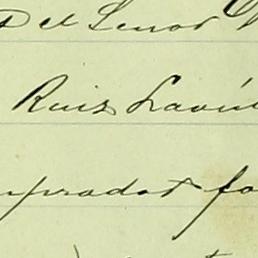 Del Senor
Ruiz Lavín
mpradot fo